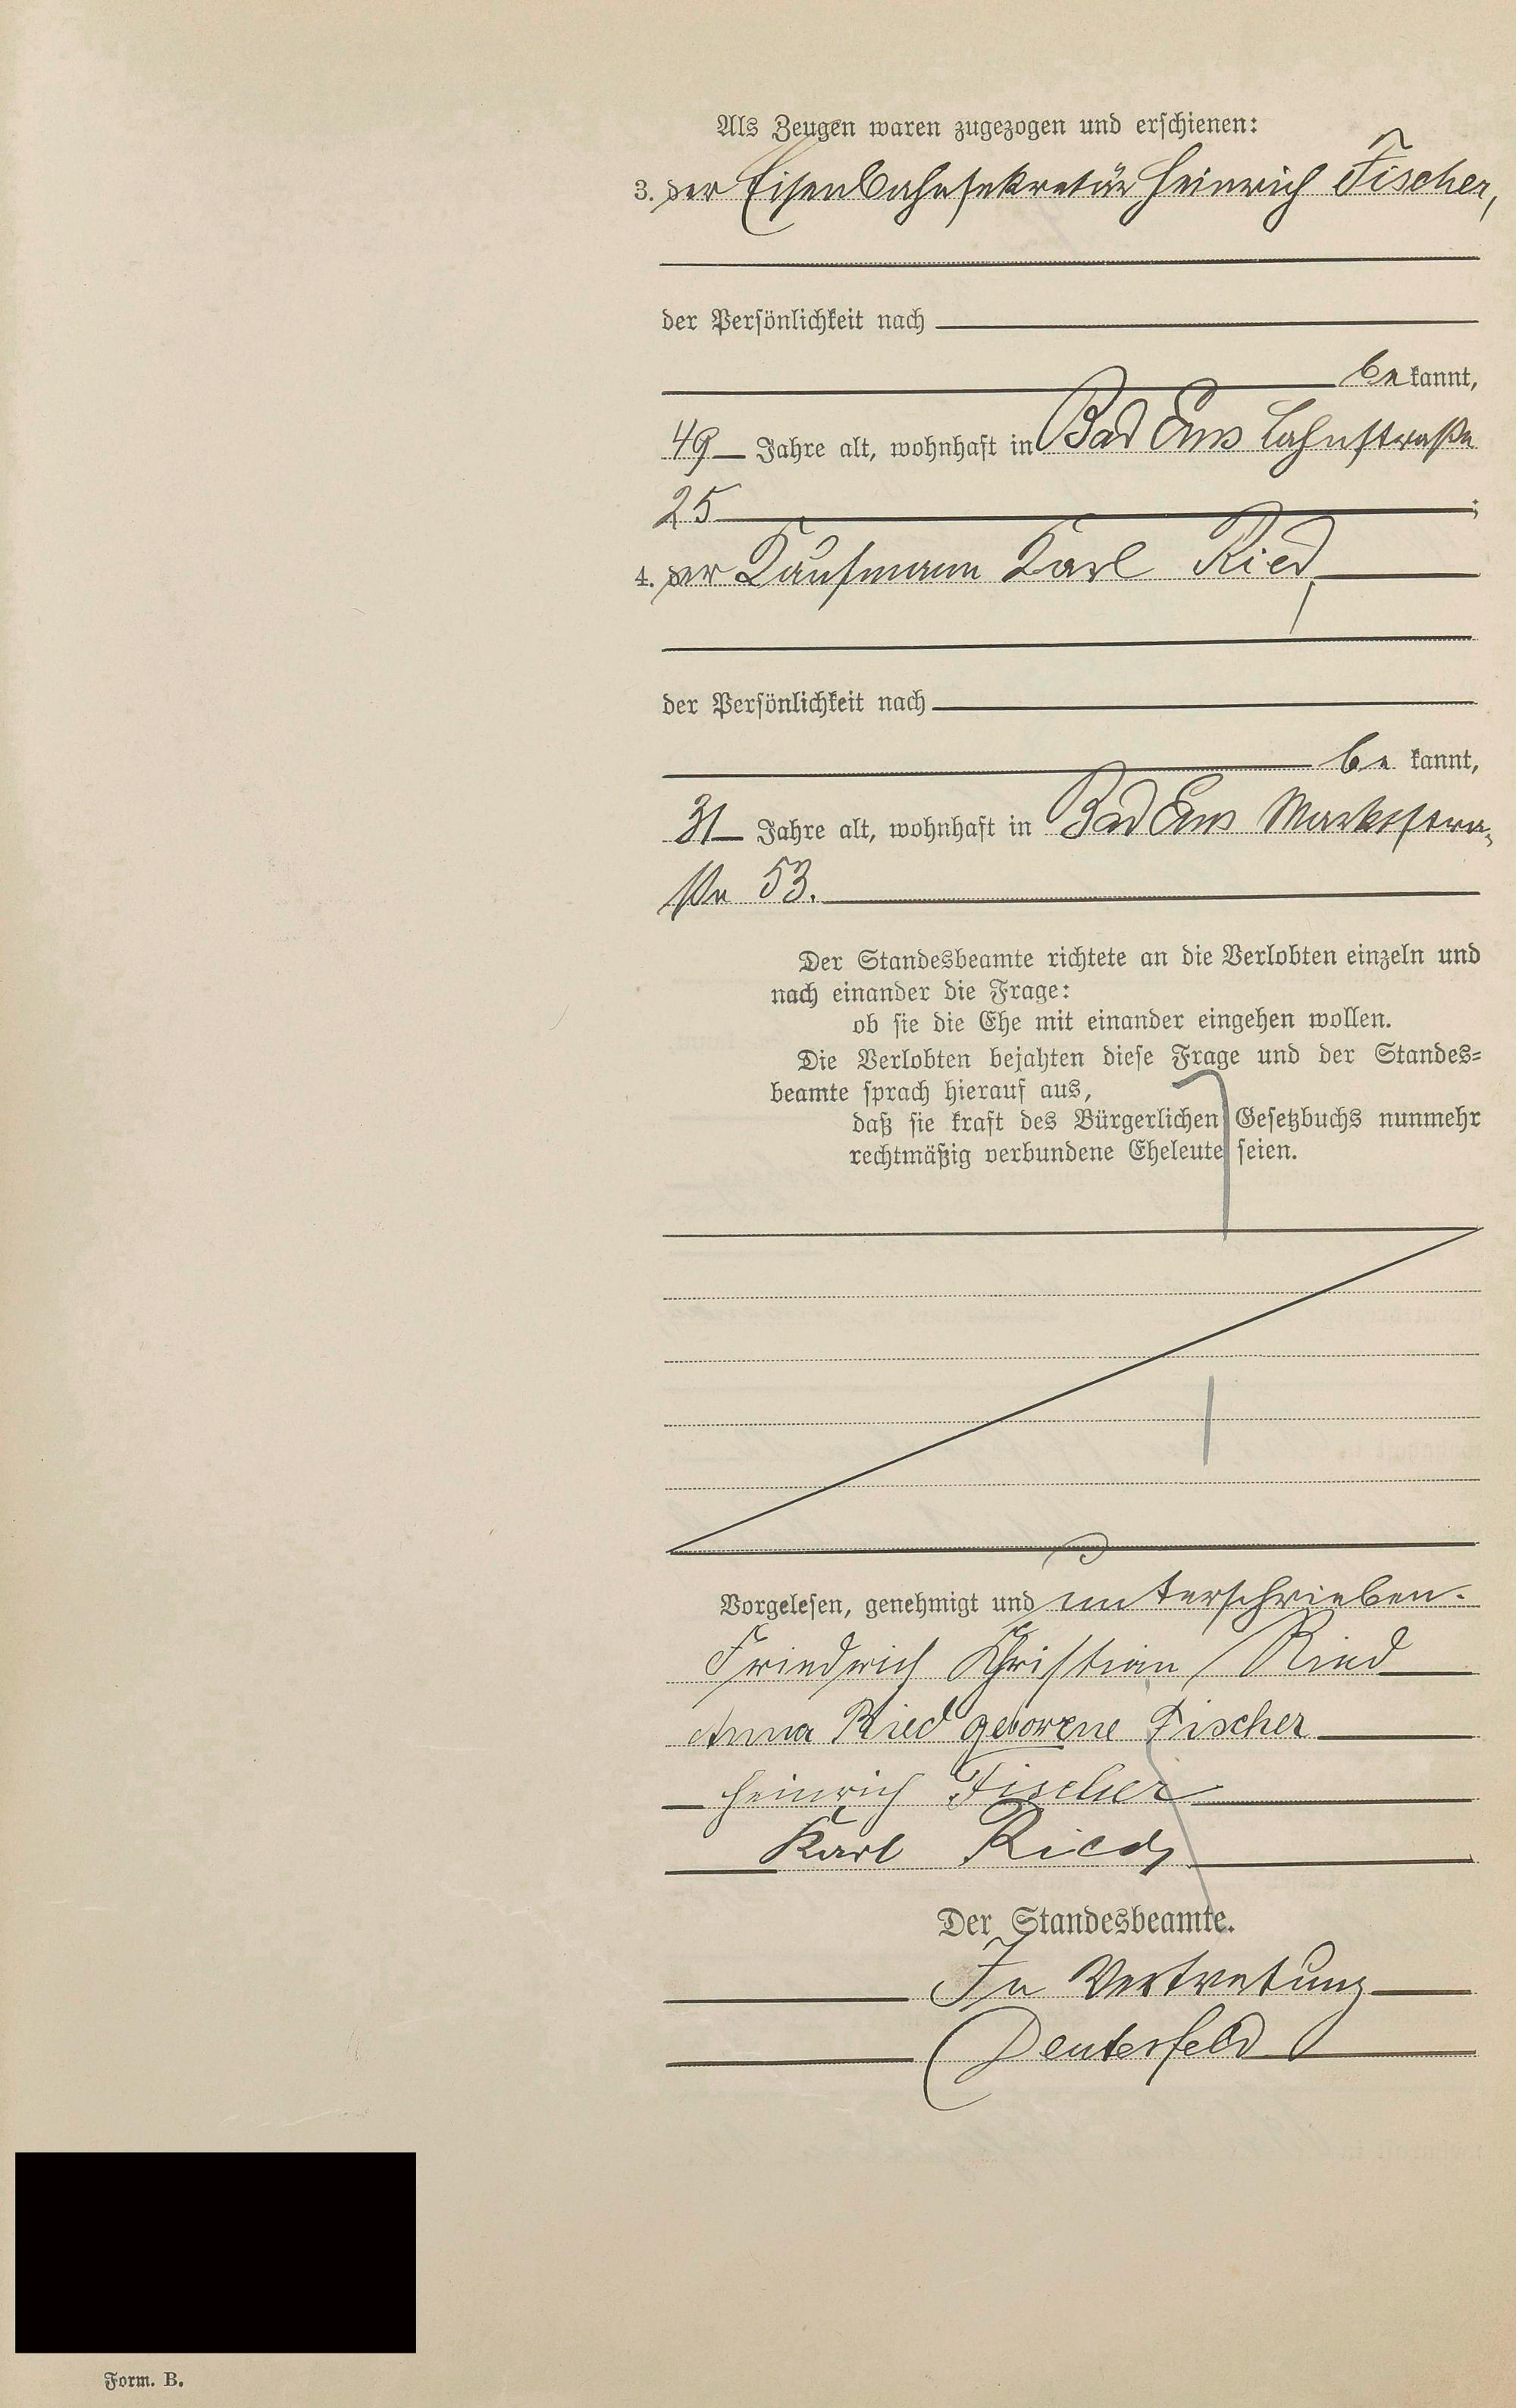 Als Zeugen waren zugezogen und erschienen:
3. der Eisenbahnsekretär Heinrich Fischer,
der Persönlichkeit nach
be kannt,
49 Jahre alt, wohnhaft in Bad Ems Lahnstraße
25 ;
4. der Kaufmann Karl Ried,
der Persönlichkeit nach
be kannt,
31 Jahre alt, wohnhaft in Bad Ems Marktstra-
ße 53.
Der Standesbeamte richtete an die Verlobten einzeln und
nach einander die Frage:
ob sie die Ehe mit einander eingehen wollen.
Die Verlobten bejahten diese Frage und der Standes-
beamte sprach hierauf aus,
daß sie kraft des Bürgerlichen Gesetzbuchs nunmehr
rechtmäßig verbundene Eheleute seien.
Vorgelesen, genehmigt und unterschrieben.
Friedrich Christian Ried
Anna Ried geborene Fischer
Heinrich Fischer
Karl Ried
Der Standesbeamte.
In Vertretung
Deutesfeld
Form. B.